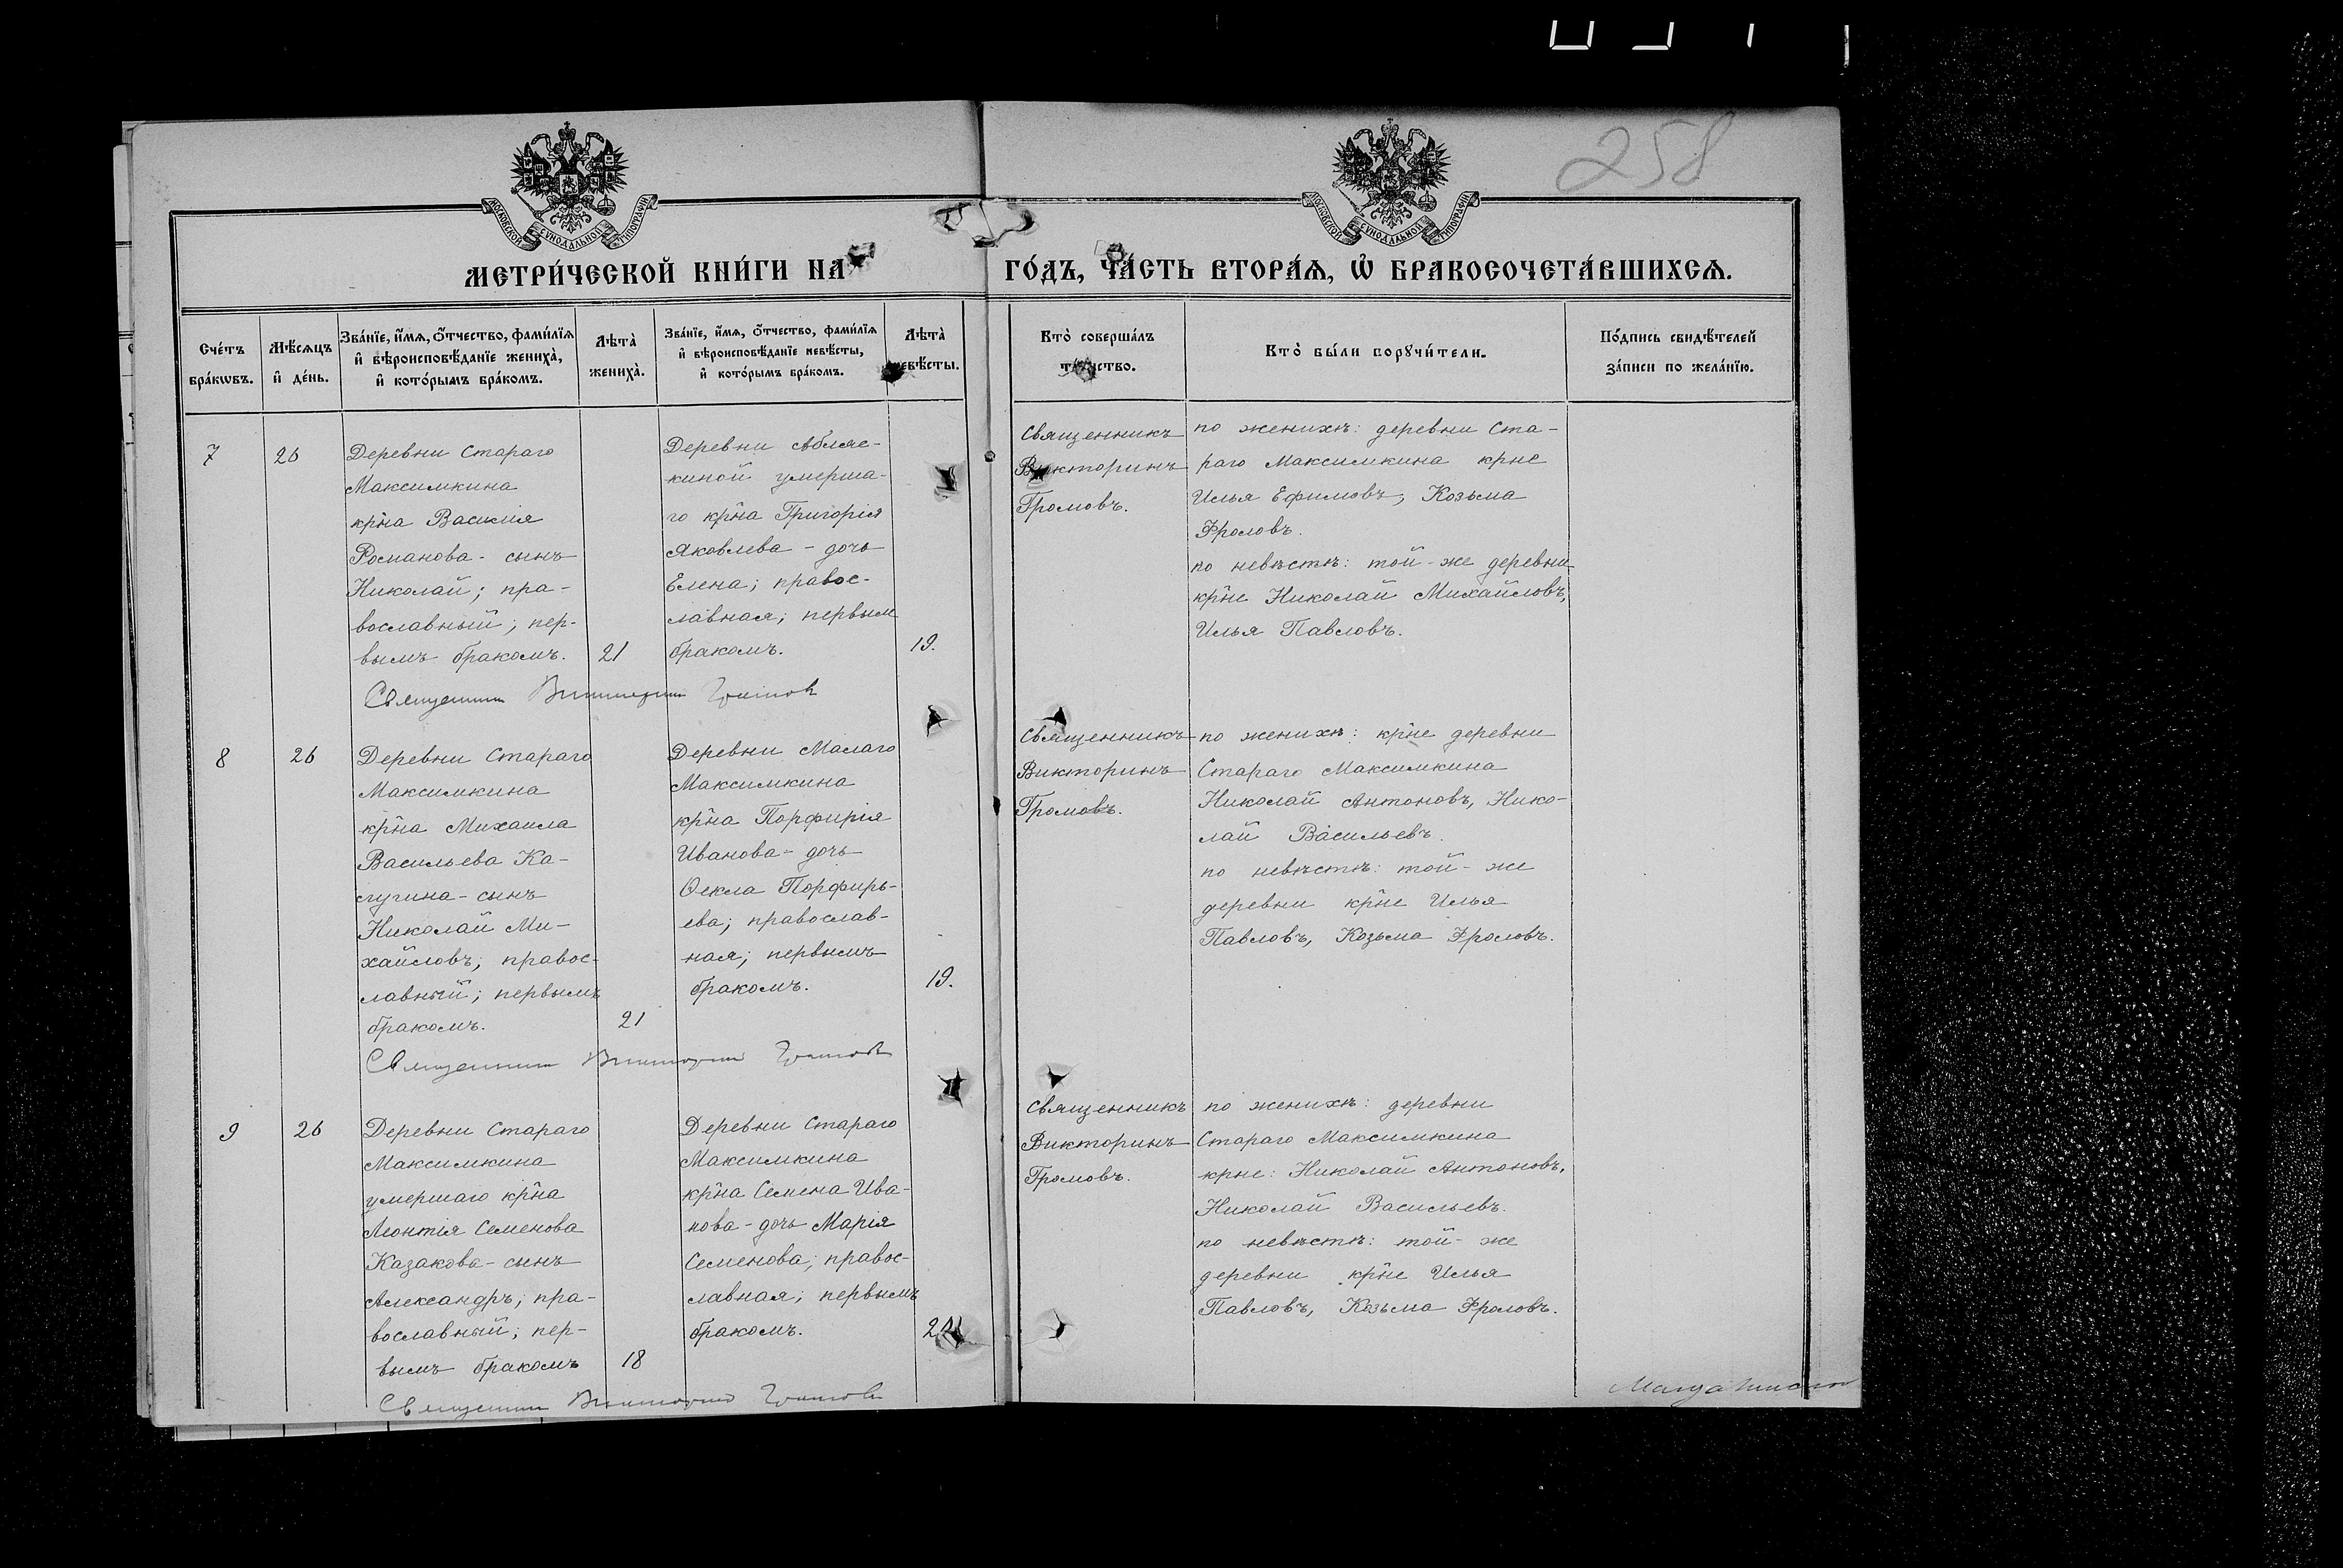 258
МОСКОВСКОЙ СѴНОДАЛЬНОЙ ТИПОГРАФІИ
МОСКОВСКОЙ СѴНОДАЛЬНОЙ ТИПОГРАФІИ
МЕТРИ́ЧЕСКОЙ КНИ́ГИ НА ГО́ДЪ, ЧА́СТЬ ВТОРА́Ѧ, Ѡ҆ БРАКОСОЧЕТА́ВШИХСѦ.
Сче́тъ
бра́кѡвъ.
Мѣ́сѧцъ
и҆ де́нь.
Зва́нїе, и҆́мѧ, ѻ҆́тчество, фами́лїѧ
и҆ вѣроисповѣ́данїе жениха̀,
и҆ кото́рымъ бра́комъ.
Лѣ́та̀
жениха̀.
Зва́нїе, и҆́мѧ, ѻ҆́тчество, фами́лїѧ
и҆ вѣроисповѣ́данїе невѣ́сты,
и҆ кото́рымъ бра́комъ.
Лѣ́та̀
невѣ́сты.
Кто̀ соверша́лъ
та́инство.
Кто̀ бы́ли порꙋчи́тели.
По́дпись свидѣ́телей
за́писи по жела́нїю.
7
26
Деревни Стараго
Максимкина
кр̃на Василія
Романова - сынъ
Николай; пра-
вославный; пер-
вымъ бракомъ.
21
Деревни
киной умерша-
го кр̃на Григорія
Яковлева - дочь
Елена; правос-
лавная; первым
бракомъ.
19.
Священникъ
Викторинъ
Громовъ.
по женихѣ: деревни Ста-
раго Максимкина крне
Илья Ефимовъ, Козьма
Фроловъ.
по невѣстѣ: той-же деревни
кр̃не Николай Михайловъ,
Илья Павловъ.
Священник Викторин Громов
8
26
Деревни Стараго
Максимкина
кр̃на Михаила
Васильева Ка-
слугина - сынъ
Николай Ми-
хайловъ; правос-
лавный; первымъ
бракомъ.
21
Деревни Малаго
Максимкина
кр̃на Порфирія
Иванова - дочь
Ѳекла Порфирь-
ева; православ-
ная; первымъ
бракомъ.
19.
Священникъ
Викторинъ
Громовъ.
по женихѣ: кр̃не деревни
Стараго Максимкина
Николай Антоновъ, Нико-
лай Васильевъ.
по невѣстѣ: той-же
деревни кр̃не Илья
Павловъ, Козьма Фроловъ.
Священник Викторин Громов
9
26
Деревни Стараго
Максимкина
умершаго кр̃на
Леонтія Семенова
Казакова - сынъ
Александръ; пра-
вославный; пер-
вымъ бракомъ
18
Деревни Стараго
Максимкина
кр̃на Семена Ива-
нова - дочь Марія
Семенова; правос-
лавная; первымъ
бракомъ.
Священникъ
Викторинъ
Громовъ.
по женихѣ: деревни
Стараго Максимкина
крне: Николай Антоновъ,
Николай Васильевъ.
по невѣстѣ: той-же
деревни кр̃не Илья
Павловъ, Козьма Фроловъ.
Священник Викторин Громов